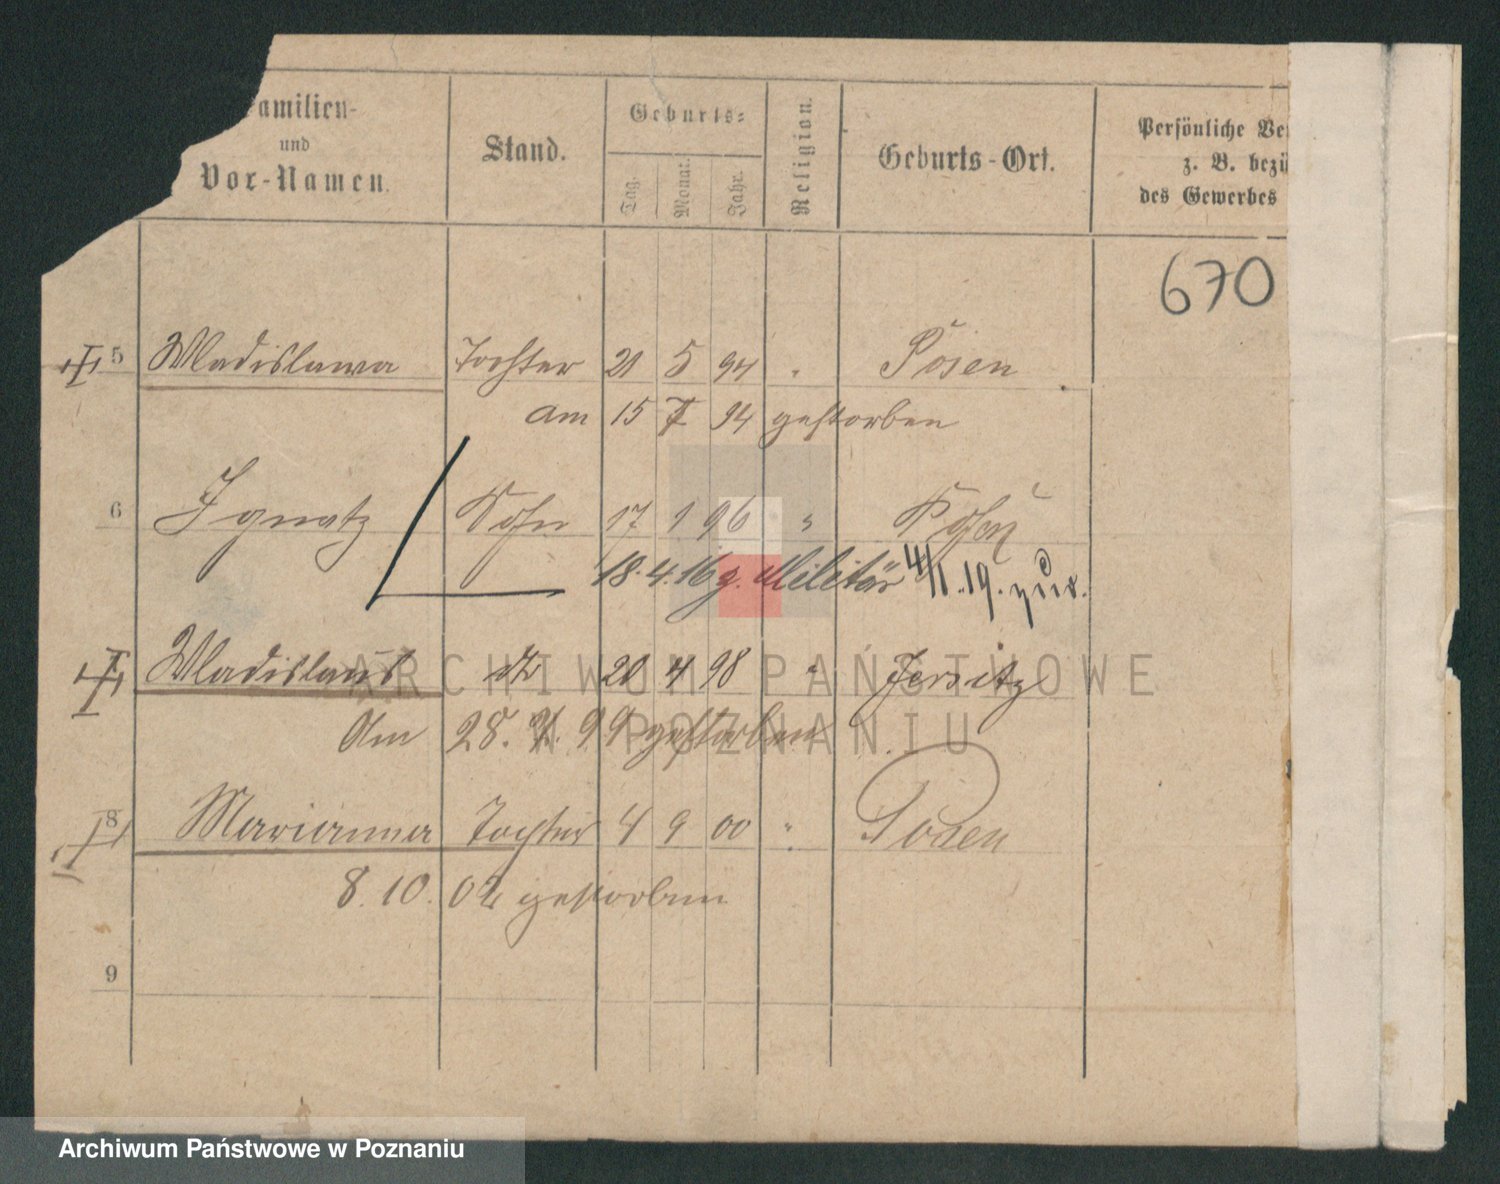 amilien-
und
Vor-Namen.
Stand.
Geburts-
Tag.
Monat.
Jahr.
Religion.
Geburts-Ort.
Persönliche Ve
z. B. bezü
des Gewerbes
670
5 Wladislawa Tochter 21 5 94 " Posen
am 15 7 94 gestorben
6 Ignatz Sohn 17 1 96 " Posen
18.4.16 z. Militär 4/1.19. zur.
Wladislaus dto 20 4 98 " Jersitz
Am 28. 99 gestorben
8 Marianna Tochter 4 9 00 " Posen
8. 10. 02 gestorben
9
ARCHIWUM PAŃSTWOWE
W POZNANIU
Archiwum Państwowe w Poznaniu